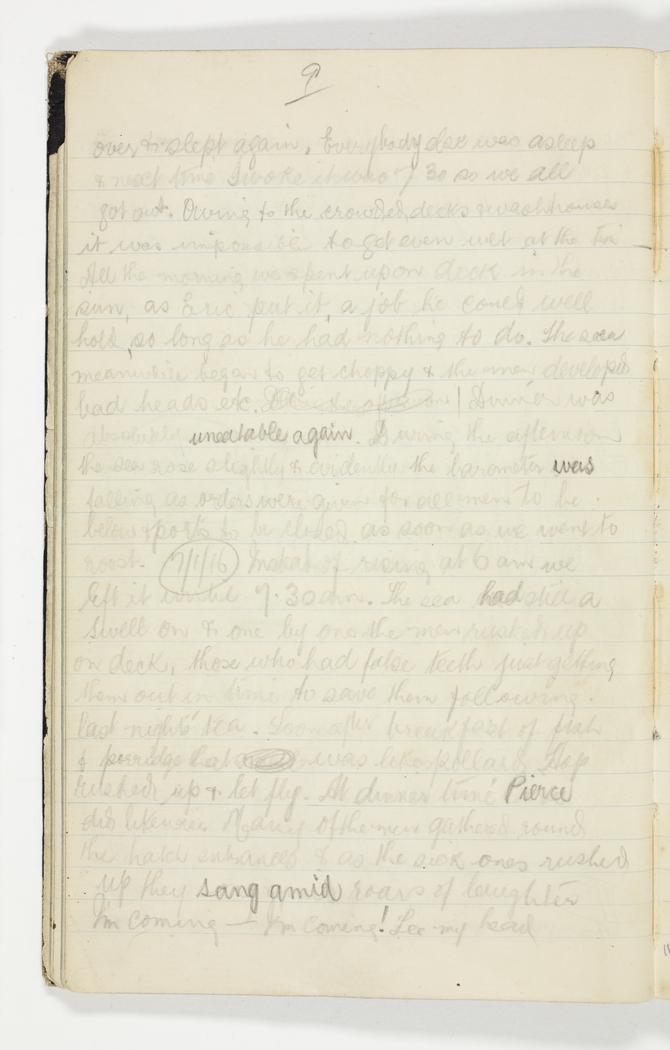 9
over & slept again. Everybody else was asleep
& next time I woke it was 7 30 so we all
got out. Owing to the crowded decks & washhouses
it was impossible to get even wet at the
All the morning we spent upon deck in the
sun, as Eric put it, a job he could well
hold, so long as he had nothing to do. The sea
meanwhile began to get choppy & the men developed
bad heads etc. Dinner was
absolutely uneatable again. During the afternoon
the sea rose slightly & evidently the barometer was
falling as orders were given for all men to be
below & ports to be closed as soon as we went to
roost. 7/1/16 Instead of rising at 6 am we
left it until 7.30 am. The sea had still a
swell on & one by one the men rushed up
on deck, those who had false teeth just getting
them out in time to save them following
last nights tea. Soon after breakfast of fish
& porridge that was like pollard, Hop
rushed up & let fly. At dinner time Pierce
did likewise. Many of the men gathered round
the hatch entrances & as the sick ones rushed
up they sang amid roars of laughter
I'm coming — I'm coming! See my head